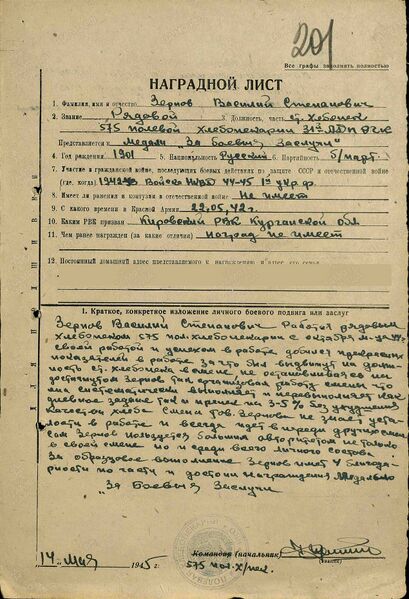 201
Все графы заполнить полностью
НАГРАДНОЙ ЛИСТ
1. Фамилия, имя и отчество Зернов Василий Степанович
2. Звание Рядовой 3. Должность, часть ст. хлебопек
575 полевой хлебопекарни 31й
Представляется к Медали "За боевые Заслуги"
4. Год рождения 1901 5. Национальность Русский 6. Партийность б/парт
7. Участие в гражданской войне, последующих боевых действиях по защите СССР и отечественной войне
(где, когда) Войска НКВД 44-45 1й укр. ф.
8. Имеет ли ранения и контузии в отечественной войне Не имеет
9. С какого времени в Красной Армии 22.05.42 г.
10. Каким РВК призван Кировский РВК Курганской обл
11. Чем ранее награжден (за какие отличия) наград не имеет
12. Постоянный домашний адрес представляемого к награждению и адрес его семьи
I. Краткое, конкретное изложение личного боевого подвига или заслуг
Зернов Василий Степанович Работая рядовым
хлебопеком 575 пол. хлебопекарни с октября м-ца 44г
своей работой и успехом в работе добился прекрасных
показателей в работе за что был выдвинут на долж
ность ст. хлебопека в смене, не останавливаясь на
достигнутом Зернов так организовал работу смены что
она систематически выполняет и перевыполняет
дневное задание 3-5% без ухудшения
качества хлеба Смена тов. Зернова не знает уста
лости в работе и всегда идет в переди других
сам Зернов пользуется большим авторитетом не только
в своей смене но и среди всего личного состава
За образцовое выполнение Зернов имеет 4 благодар
ности по части и достоин награждения Медалью
"За Боевые Заслуги"
14 "Мая 1945 г.
Командир (начальник)
575 пол. х/пек.